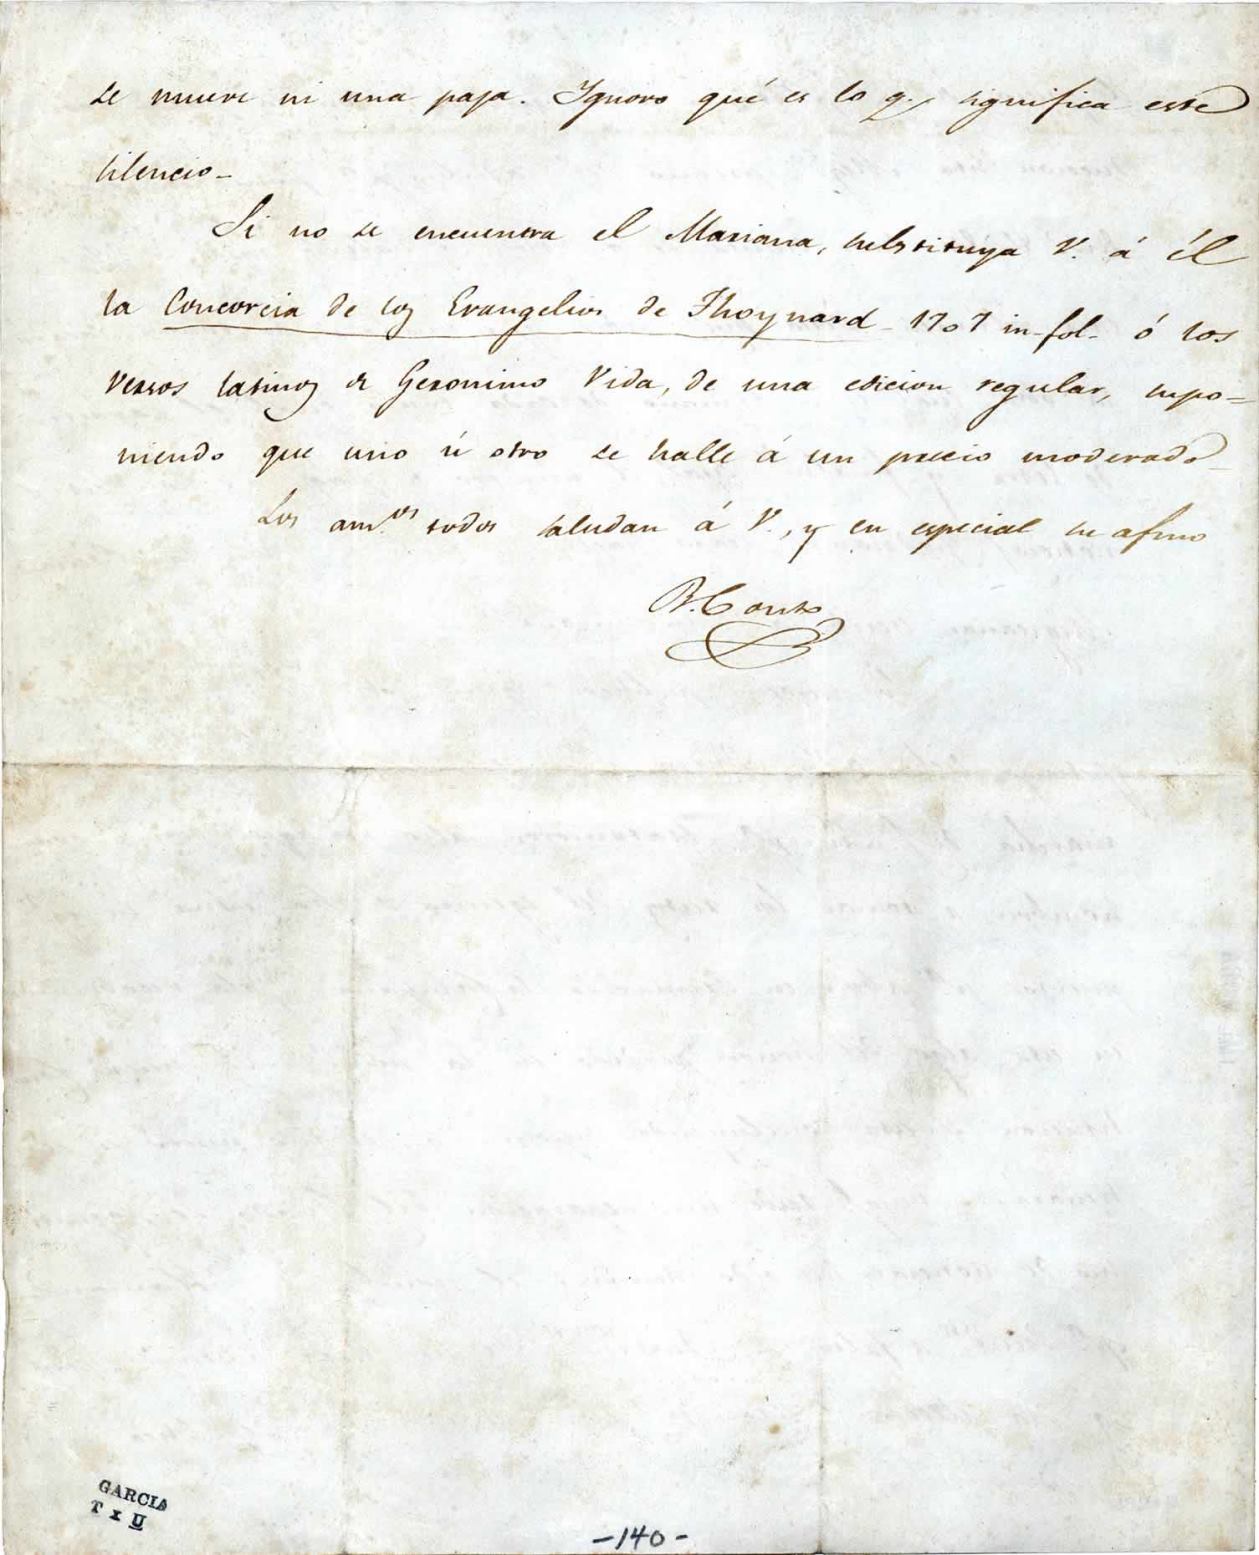 se mueve ni una paja. Ignoro qué es lo q. significa este
silencio_
Si no se encuentra el Mariana, substituya V. á él
la Concorcia de los Evangelios de Thoynard_ 1707 in-fol- ó los
versos latinos de Geronimo Vida, de una edicion regular, supo=
niendo que uno ú otro se halle á un precio moderado_
Los am.os todos saludan á V., y en especial su afmo
B. Couto
GARCIA
T x II
-140-